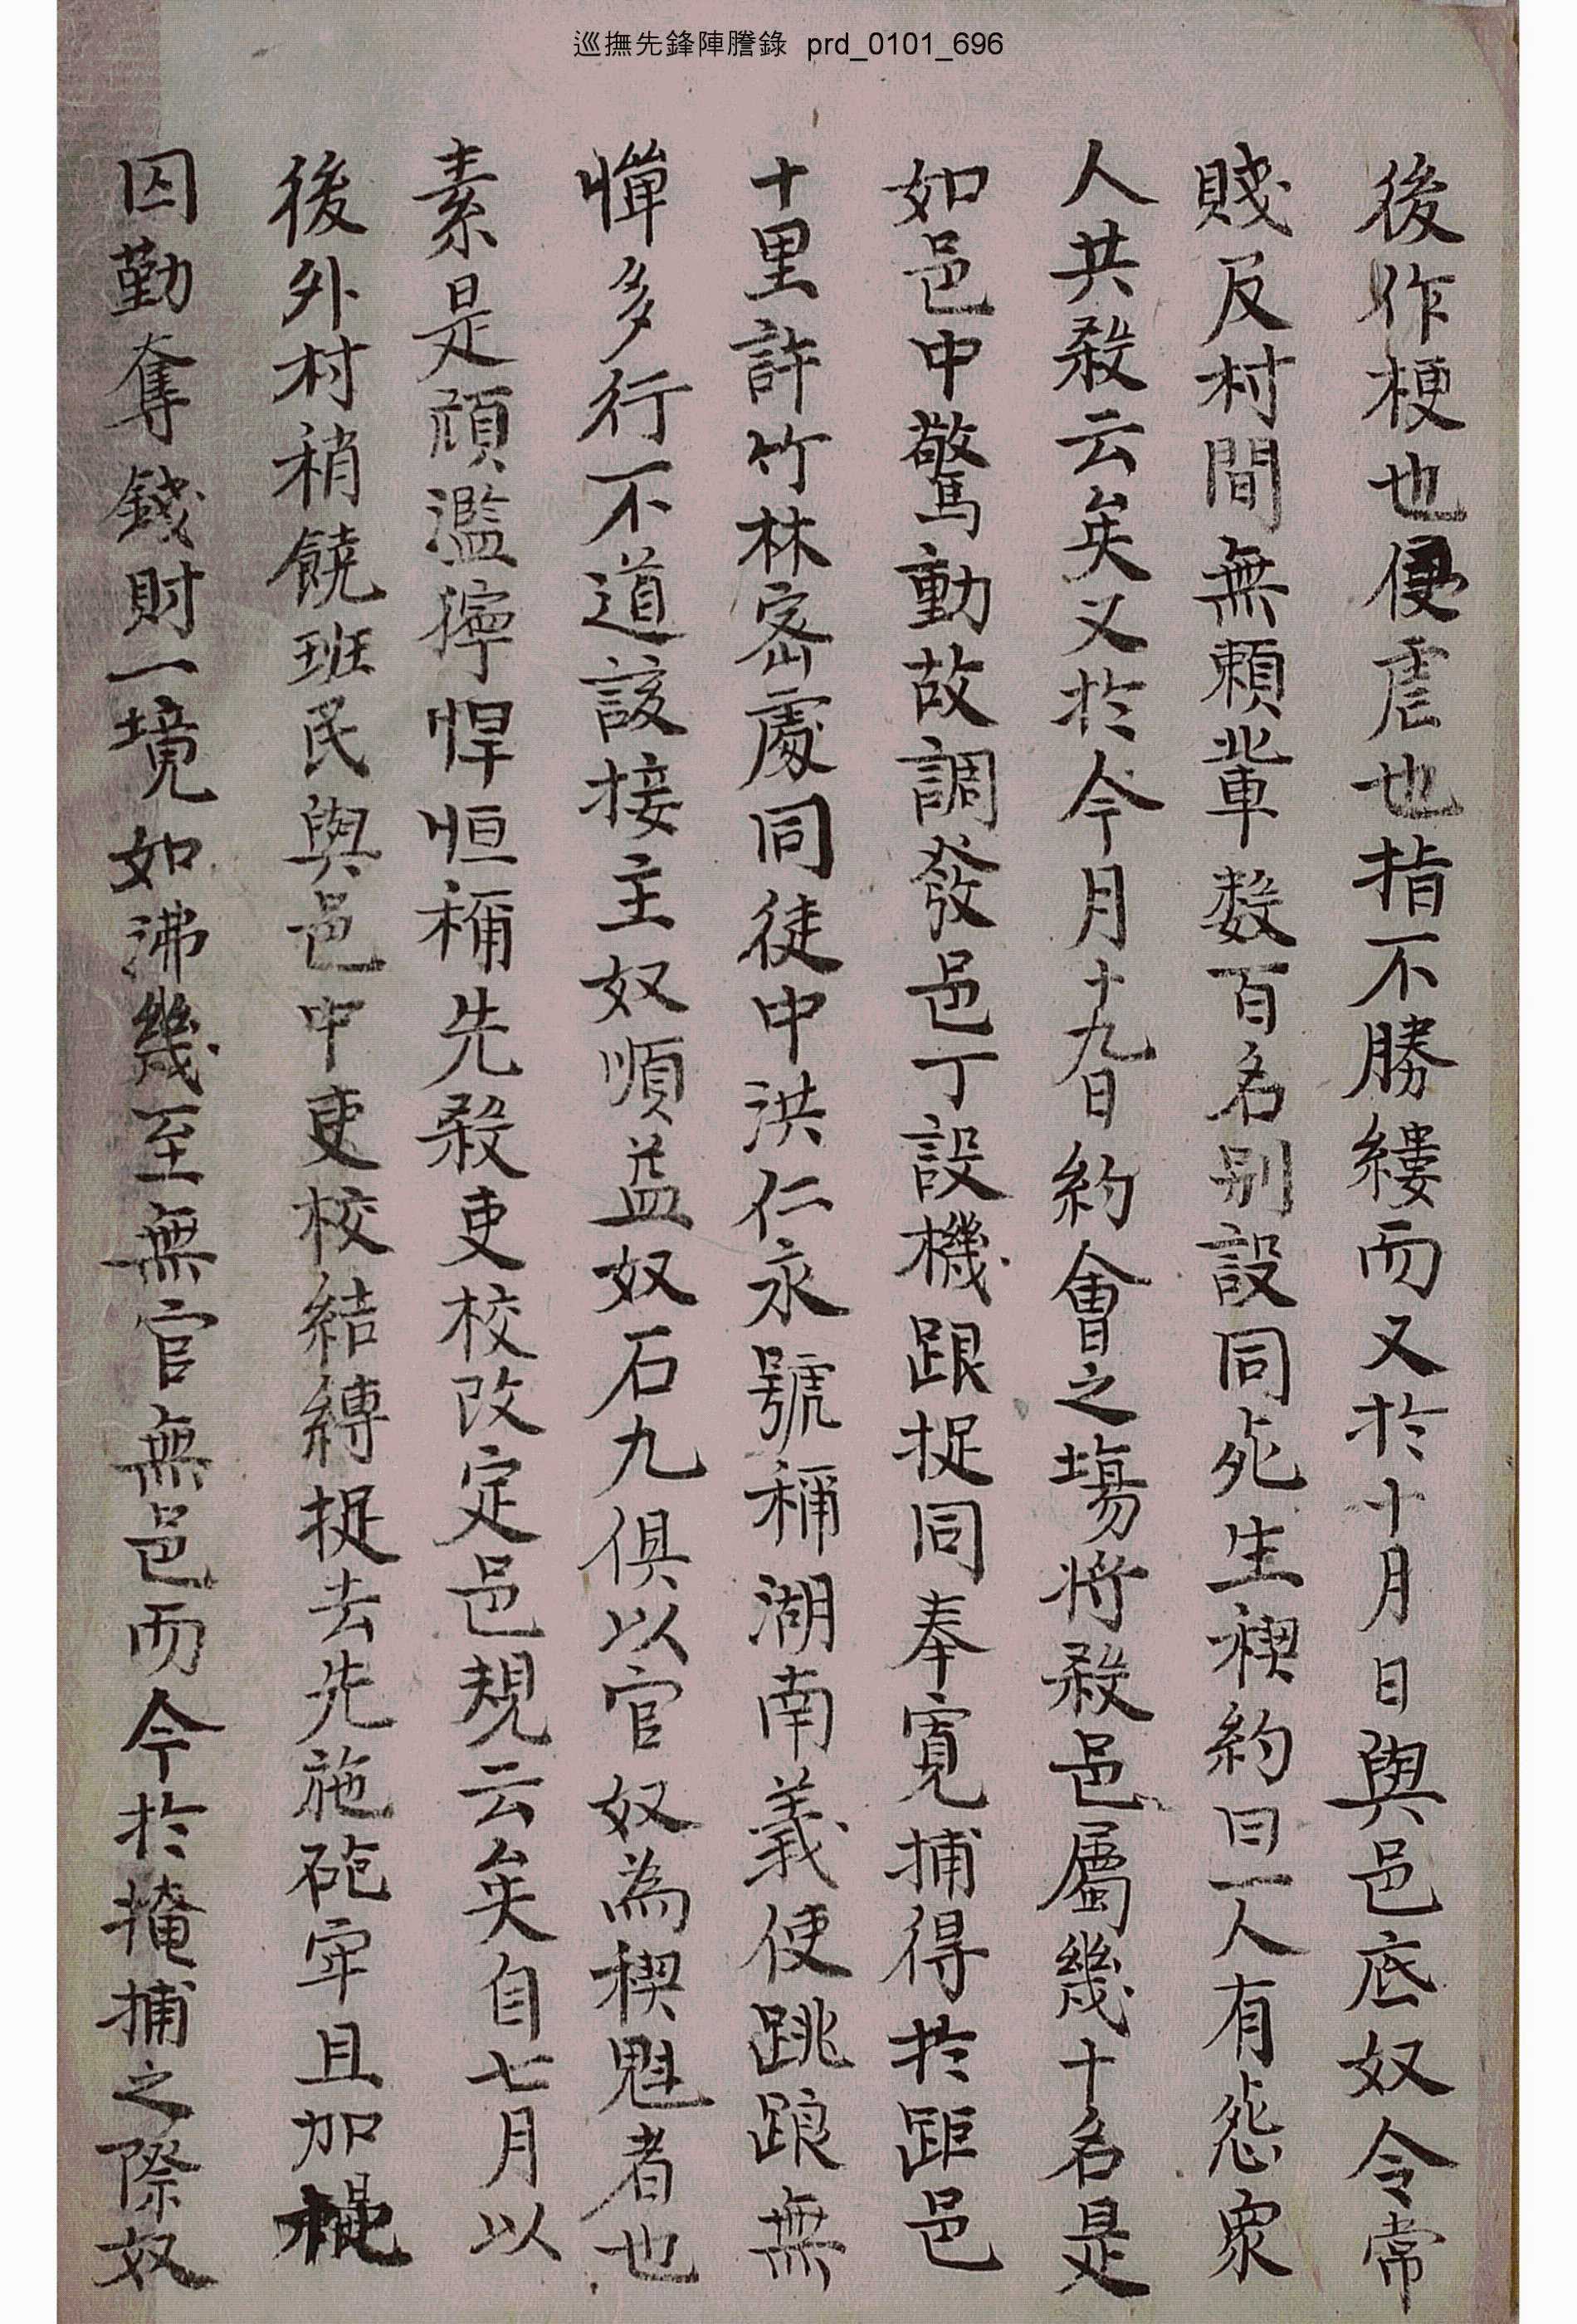 巡撫先鋒陣謄錄 prd_0101_696
後作梗也侵虐也指不勝縷而又於十月日與邑底奴令常
賤及村間無賴輩數百名别設同死生稧約曰一人有怨衆
人共殺云矣又於今月十九日約會之塲將殺邑屬幾十名是
如邑中驚動故調發邑丁設機跟捉同奉寬捕得於距邑
十里許竹林密處同徒中洪仁永號稱湖南義使跳踉無
憚多行不道該接主奴順益奴石九俱以官奴為稧魁者也
素是頑濫獰悍恒稱先殺吏校改定邑規云矣自七月以
後外村稍饒班民與邑中吏校結縛捉去先施砲牢且加
囚勤奪錢財一境如沸幾至無官無邑而今於掩捕之際奴